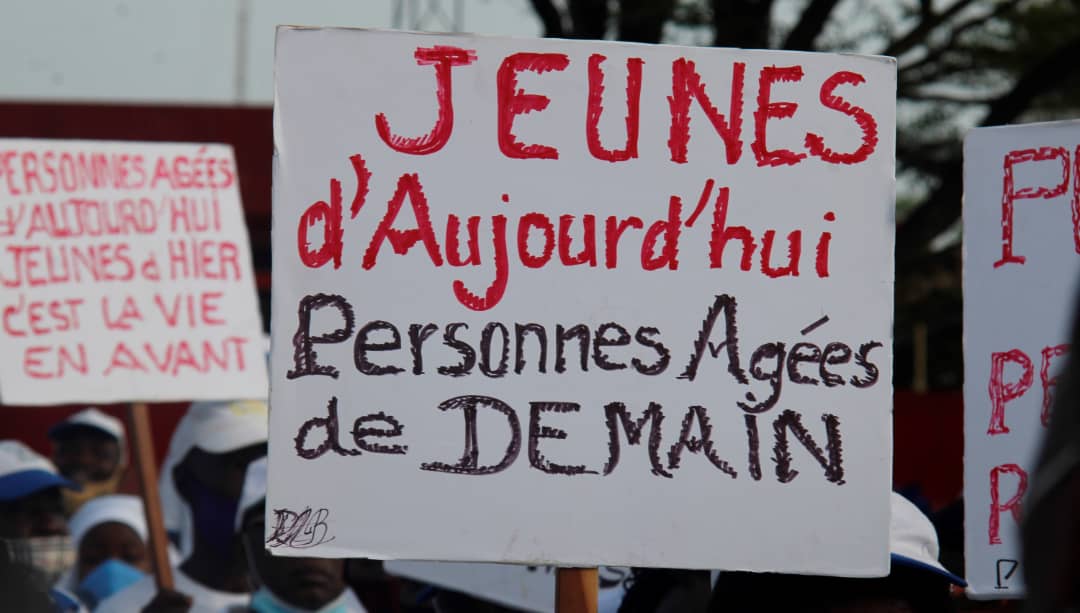 PERSONNES AGÉES
d'AUJOURD'HUI
JEUNES d'HIER
C'EST LA VIE
EN AVANT
JEUNES
d'Aujourd'hui
Personnes Agées
de DEMAIN